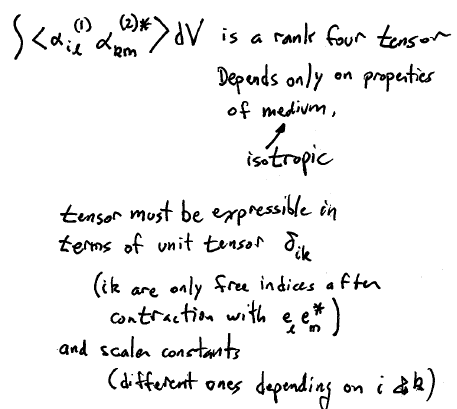 ∫<α_{il}^{(1)} α_{km}^{(2)*}>dV is a rank four tensor
Depends only on properties
of medium,
isotropic
tensor must be expressible in
terms of unit tensor δ_{ik}
(ik are only free indices after
contraction with e_l e_m^*)
and scalar constants
(different ones depending on i & k)